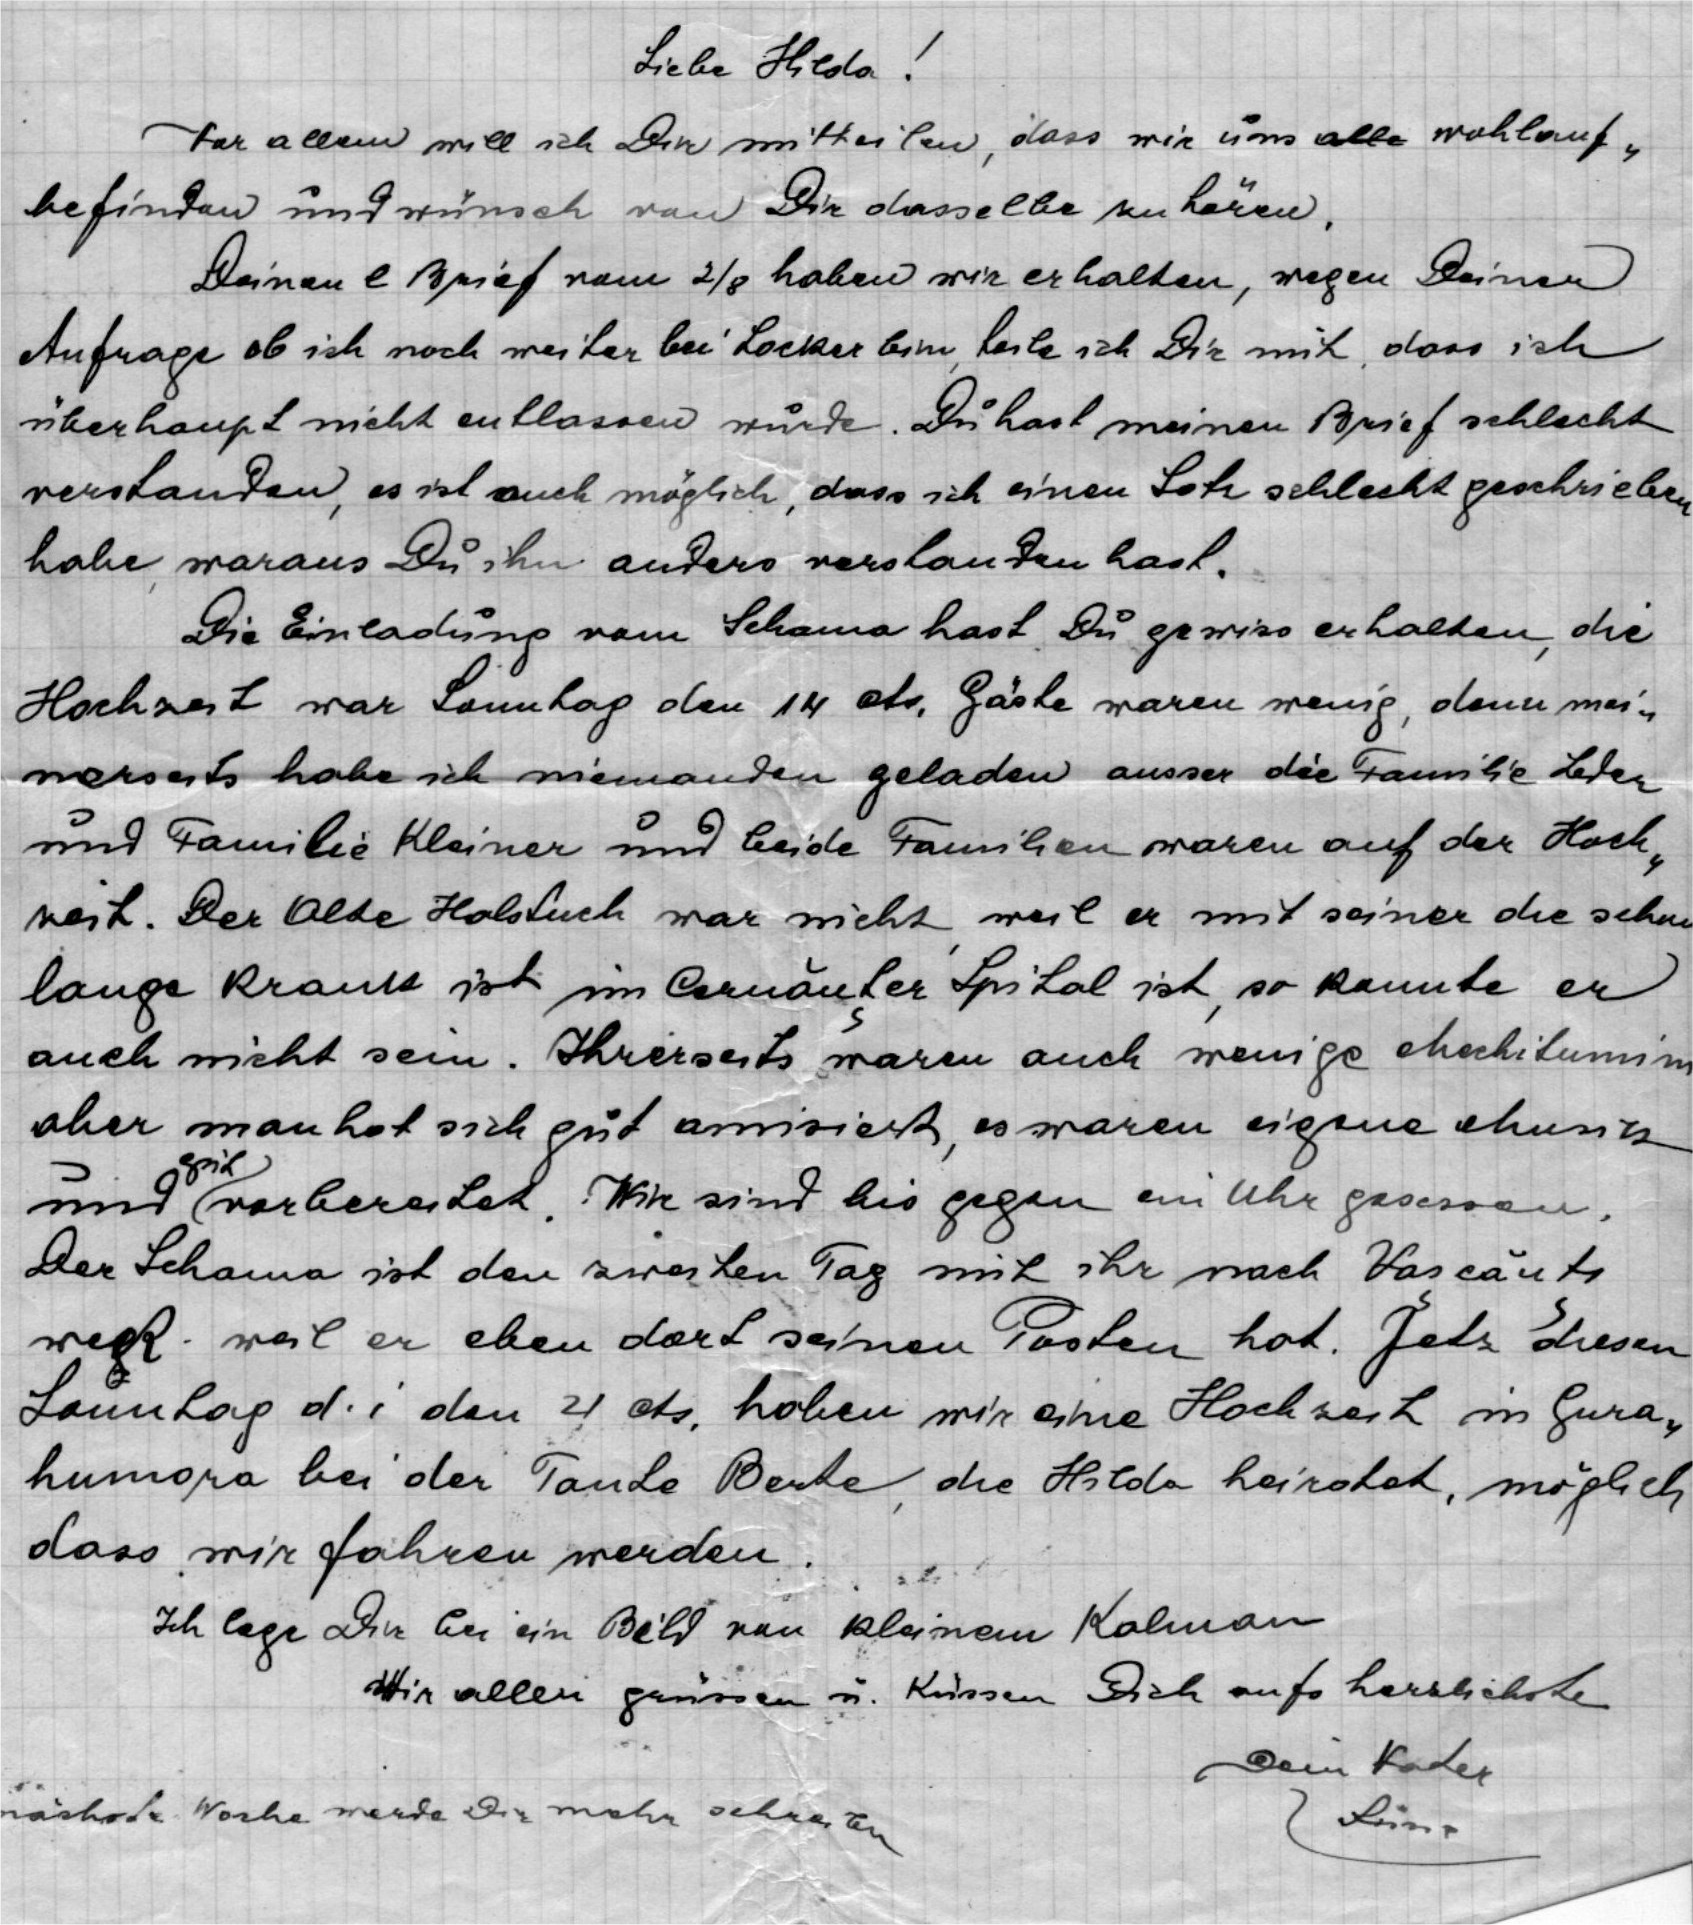 Liebe Hilda!
Vor allem will ich Dir mitteilen, dass wir uns alle wohlauf„
befinden und wünsch von Dir dasselbe zu hören.
Deinen l Brief vom 2/8 haben wir erhalten, wegen Deiner
Anfrage ob ich noch weiter bei Locker bin, teile ich Dir mit, dass ich
überhaupt nicht entlassen wurde. Du hast meinen Brief schlecht
verstanden, es ist auch möglich, dass ich einen Satz schlecht geschrieben
habe, woraus Du ihn anders verstanden hast.
Die Einladung vom Schama hast Du gewiss erhalten, die
Hochzeit war Sonntag den 14 cts. Gäste waren wenig, denn mei„
nerseits habe ich niemanden geladen ausser die Familie Leder
und Familie Kleiner und beide Familien waren auf der Hoch„
zeit. Der Alte Holstuch war nicht, weil er mit seiner die schon
lange krank ist im Cernăuțer Spital ist, so konnte er
auch nicht sein. Ihrerseits waren auch wenige Mechitunim
aber man hat sich gut amisiert, es waren eigene Musik
und gut vorbereitet. Wir sind bis gegen ein Uhr gesessen.
Der Schama ist den zweiten Tag mit ihr nach Vașcăuți
weg. weil er eben dort seinen Posten hat. Jetz diesen
Sonntag d. i den 21 cts. haben wir eine Hochzeit in Gura„
humora bei der Tante Berte, die Hilda heiratet, möglich
dass wir fahren werden.
Ich lege Dir bei ein Bild von kleinem Kalman
Wir allen grüssen u. Küssen Dich aufs herzlichste
Dein Vater
nächste Woche werde Dir mehr schreiben